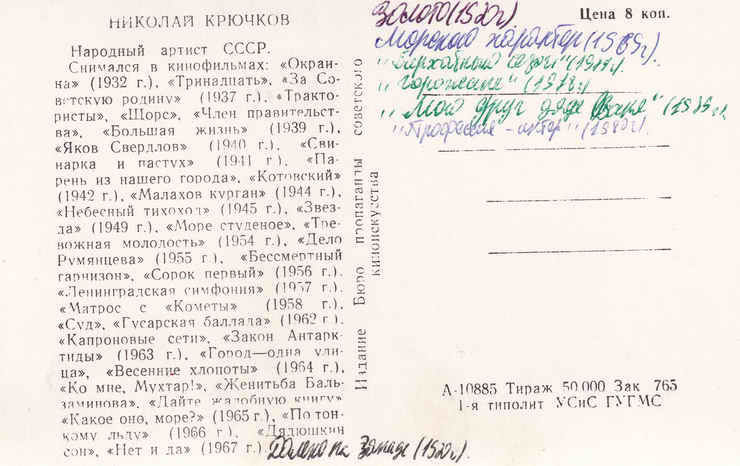 НИКОЛАЙ КРЮЧКОВ
Народный артист СССР.
Снимался в кинофильмах: «Окраи-
на» (1932 г.), «Тринадцать», «За Со-
ветскую родину» (1937 г.), «Тракто-
ристы», «Щорс», «Член правительст-
ва», «Большая жизнь» (1939 г.),
«Яков Свердлов» (1940 г.), «Сви-
нарка и пастух» (1941 г.), «Па-
рень из нашего города», «Котовский»
(1942 г.), «Малахов курган» (1944 г.),
«Небесный тихоход» (1945 г.), «Звез-
да» (1949 г.), «Море студеное», «Тре-
вожная молодость» (1954 г.), «Дело
Румянцева» (1955 г.), «Бессмертный
гарнизон», «Сорок первый» (1956 г.),
«Ленинградская симфония» (1957 г.),
«Матрос с «Кометы» (1958 г.),
«Суд», «Гусарская баллада» (1962 г.),
«Капроновые сети», «Закон Антарк-
тиды» (1963 г.), «Город—одна ули-
ца», «Весенние хлопоты» (1964 г.),
«Ко мне, Мухтар!», «Женитьба Баль-
заминова», «Дайте жалобную книгу»
«Какое оно, море?» (1965 г.), «По тон-
кому льду» (1966 г.), «Дядюшкин
сон», «Нет и да» (1967 г.)
Далеко на Западе
Издание Бюро пропаганды советского
киноискусства
Цена 8 коп.
Золото
Морской характер
"Горожане"
"Мой друг дядя Ваня"
"Профессия - актер"
А-10885 Тираж 50.000 Зак 765
1-я типолит УСиС ГУГМС